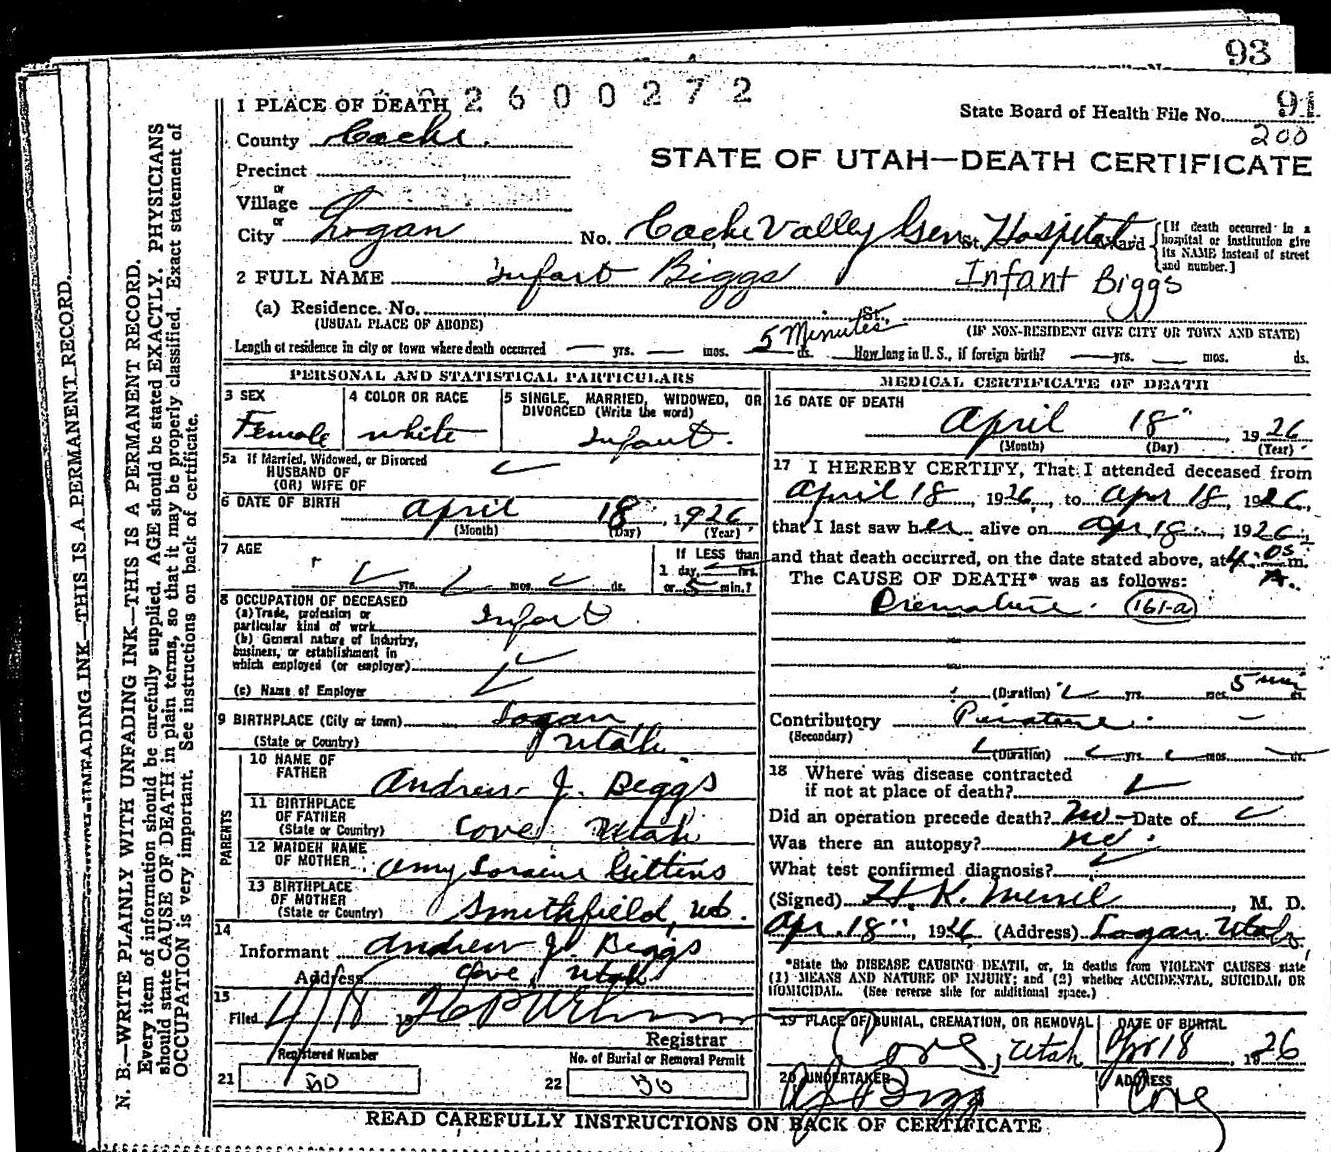 93
2 6 0 0 2 7 2
1 PLACE OF DEATH
State Board of Health File No.
200
County Cache.
STATE OF UTAH—DEATH CERTIFICATE
Precinct
or
Village
or
City Logan No. Cache Valley Gen St. Hospital Ward
[If death occurred in a hospital or institution give its NAME instead of street and number.]
2 FULL NAME Infant Biggs Infant Biggs
(a) Residence. No. St.
(USUAL PLACE OF ABODE) (IF NON-RESIDENT GIVE CITY OR TOWN AND STATE)
Length of residence in city or town where death occurred yrs. mos. 5 Minutes ds. How long in U. S., if foreign birth? yrs. mos. ds.
PERSONAL AND STATISTICAL PARTICULARS
3 SEX 4 COLOR OR RACE 5 SINGLE, MARRIED, WIDOWED, OR DIVORCED (Write the word)
Female white Infant.
5a If Married, Widowed, or Divorced
HUSBAND OF
(OR) WIFE OF
6 DATE OF BIRTH April 18, 1926
(Month) (Day) (Year)
7 AGE yrs. mos. ds.
If LESS than
1 day, hrs.
or 5 min.?
8 OCCUPATION OF DECEASED
(a) Trade, profession or
particular kind of work Infant
(b) General nature of industry,
business, or establishment in
which employed (or employer)
(c) Name of Employer
9 BIRTHPLACE (City or town) Logan
(State or Country) Utah
PARENTS
10 NAME OF
FATHER Andrew J. Biggs
11 BIRTHPLACE
OF FATHER
(State or Country) Cove Utah
12 MAIDEN NAME
OF MOTHER Amy Loraine Gittins
13 BIRTHPLACE
OF MOTHER
(State or Country) Smithfield, Ut.
14
Informant Andrew J. Biggs
Address Cove, Utah
15
Filed 4/18
Registrar
Registered Number No. of Burial or Removal Permit
21 50 22 50
MEDICAL CERTIFICATE OF DEATH
16 DATE OF DEATH
April 18", 1926
(Month) (Day) (Year)
17 I HEREBY CERTIFY, That I attended deceased from
April 18, 1926, to Apr 18, 1926,
that I last saw her alive on Apr 18, 1926,
and that death occurred, on the date stated above, at 4:05 A. m.
The CAUSE OF DEATH* was as follows:
Premature. 161-a
(Duration) yrs. mos. 5 min ds.
Contributory
(Secondary)
(Duration) yrs. mos. ds.
18 Where was disease contracted
if not at place of death?
Did an operation precede death? No Date of
Was there an autopsy? No
What test confirmed diagnosis?
(Signed) H. K. Merrill, M. D.
Apr. 18", 1926 (Address) Logan Utah
*State the DISEASE CAUSING DEATH, or, in deaths from VIOLENT CAUSES state
(1) MEANS AND NATURE OF INJURY; and (2) whether ACCIDENTAL, SUICIDAL, OR
HOMICIDAL. (See reverse side for additional space.)
19 PLACE OF BURIAL, CREMATION, OR REMOVAL DATE OF BURIAL
Cove, Utah Apr 18 1926
20 UNDERTAKER ADDRESS
A J Biggs Cove
READ CAREFULLY INSTRUCTIONS ON BACK OF CERTIFICATE
UNFADING INK—THIS IS A PERMANENT RECORD.
N. B.—WRITE PLAINLY WITH UNFADING INK—THIS IS A PERMANENT RECORD.
Every item of information should be carefully supplied. AGE should be stated EXACTLY. PHYSICIANS
should state CAUSE OF DEATH in plain terms, so that it may be properly classified. Exact statement of
OCCUPATION is very important. See instructions on back of certificate.